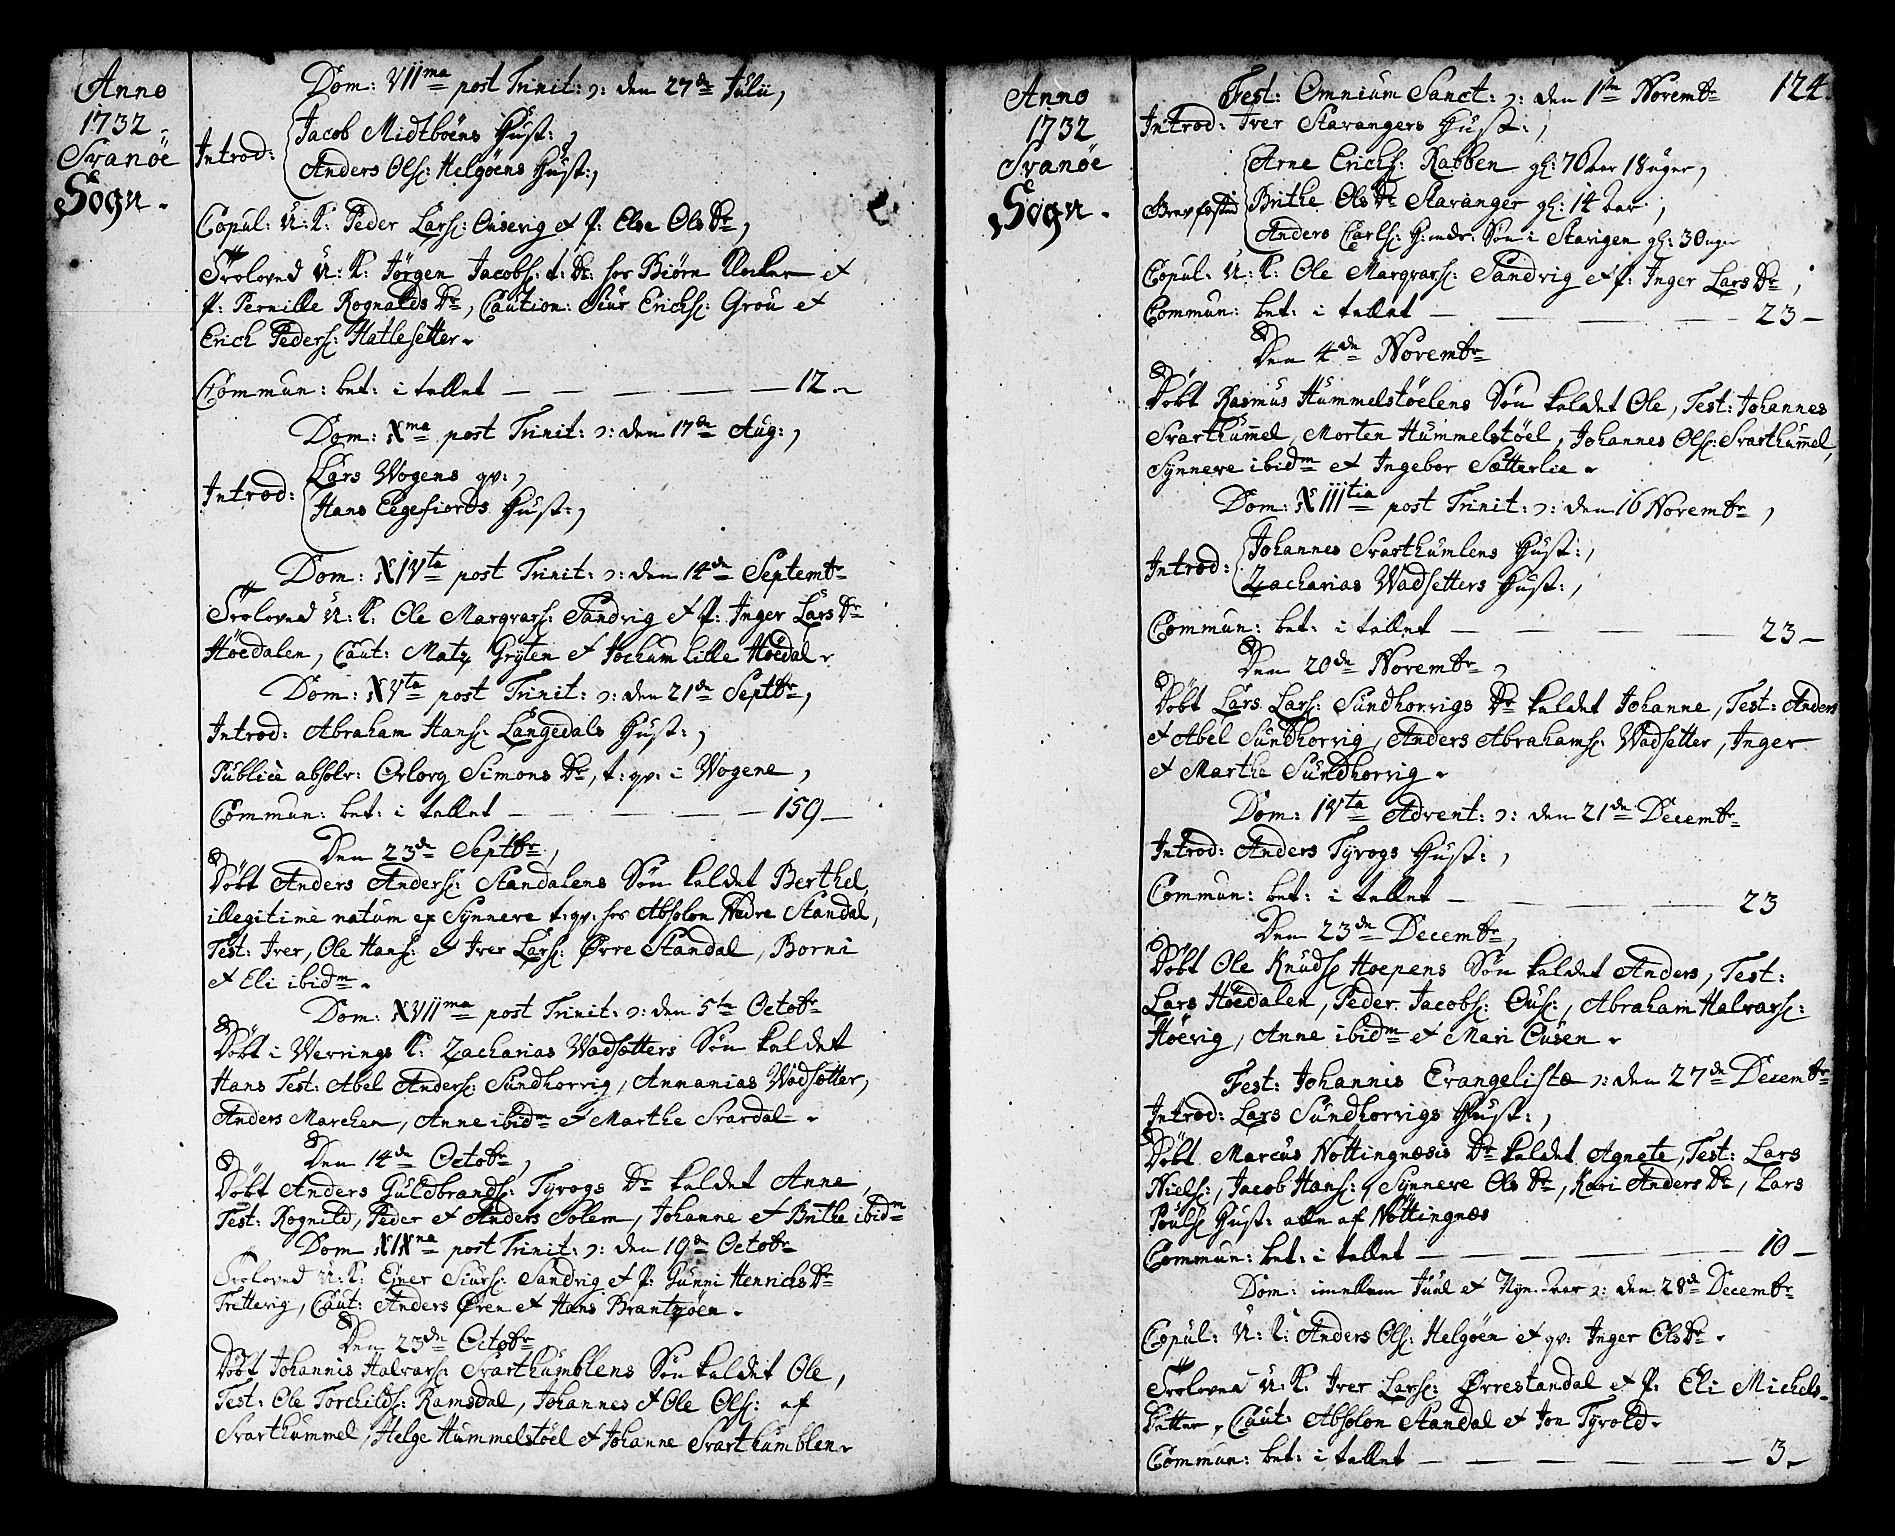 Anno
1732.
Svanöe
Sogn.
Dom: VII ma post Trinit: ɔ: den 27 de Julii,
Introd: Jacob Midtböens Hust:,
Anders Ols: Helgöens Hust:,
Copul: U: K: Peder Lars: Ousevig et P: Else Ols Dr,
Troloved U: K: Jörgen Jacobs: t: Dr: hos Biörn et
P: Pernille Rognalds Dr, Caution: Siur Erichs: Grou et
Erich Peders: Hatlesetter.
Commun: bet: i tallet — — — — 12.
Dom: X ma post Trinit: ɔ: den 17 de Aug:,
Introd: Lars Wogens qv:,
Hans Eegefiords Hust:,
Dom: XIV ta post Trinit: ɔ: den 14 de Septembr
Troloved U: K: Ole Margvars: Sandvig et P: Inger Lars Dr
Höedalen, Caut: Matz Gryten et Jochum Lille Höedal.
Dom: XV ta post Trinit: ɔ: den 21 de Septbr,
Introd: Abraham Hans: Langedals Hust:,
Publicè absolv: Orlorg Simons Dr, t: qv: i Wogene,
Commun: bet: i tallet — — — — 159 —
Den 23 de Septbr,
Döbt Anders Anders: Standalens Sön kaldet Berthel,
illegitimè natum ex Synneve t: qv: hos Absolon Nedre Standal,
Test: Iver, Ole Hans: et Iver Lars: Övre Standal, Borni
et Eli ibidm.
Dom: XVII ma post Trinit: ɔ: den 5 te Octobr
Döbt i Wevrings K: Zacharias Wadsetters Sön kaldet
Hans Test: Abel Anders: Sundhorvig, Annanias Wadsetter,
Anders Marchen, Anne ibidm et Marthe Svardal.
Den 14 de Octobr,
Döbt Anders Guldbrands: Tyvogs Dr kaldet Anne,
Test: Rognild, Peder et Anders Solem, Johanne et Brithe ibidm
Dom XIX na post Trinit: ɔ: den 19 de Octobr
Troloved U: K: Ejner Siurs: Sandvig et P: Gunni Henrichs Dr
Trettevig, Caut: Anders Ören et Hans Brantzöen.
Den 23 de Octobr
Döbt Johannis Halvars: Svarthumblens Sön kaldet Ole,
Test: Ole Torchilds: Ramsdal, Johannes et Ole Ols: af
Svarthummel, Helge Hummelstöel et Johanne Svarthumblen.
Anno
1732
Svanöe
Sogn.
124.
Fest: Omnium Sanct: ɔ: den 1 ste Novembr
Introd: Iver Stavangers Hust:,
Arne Erichs: Rabben gl: 70 aar 18 uger,
Brithe Ols Dr Stavanger gl: 14 aar,
Anders Carls: Sön i Stavigen gl: 30 uger
Copul: U: K: Ole Margvars: Sandvig et P: Inger Lars Dr,
Commun: bet: i tallet — — — — 23 —
Den 4 de Novembr
Döbt Rasmus Hummelstöelens Sön kaldet Ole, Test: Johannes
Svarthummel, Morten Hummelstöel, Johannes Ols: Svarthummel,
Synneve ibidm et Ingebor Sætterlie.
Dom: XIII tia post Trinit: ɔ: den 16 Novembr,
Introd: Johannes Svarthumlens Hust:,
Zacharias Wadsetters Hust:,
Commun: bet: i tallet — — — — 23 —
Den 20 de Novembr,
Döbt Lars Lars: Sundhorvigs Dr kaldet Johanne, Test: Anders
et Abel Sundhorvig, Anders Abrahams: Wadsetter, Inger
et Marthe Sundhorvig.
Dom: IV ta Advent: ɔ: den 21 de Decembr
Introd: Anders Tyvogs Hust:,
Commun: bet: i tallet — — — 23
Den 23 de Decembr,
Döbt Ole Knuds: Hoepens Sön kaldet Anders, Test:
Lars Höedalen, Peder Jacobs: Ous:, Abraham Halvars:
Höevig, Anne ibidm et Mari Ousen.
Fest: Johannis Evangelistæ ɔ: den 27 de Decembr
Introd: Lars Sundhorvigs Hust:,
Döbt Marcus Nöttingnæsis Dr kaldet Agnete, Test: Lars
Niels:, Jacob Hans:, Synneve Ols Dr, Kari Anders Dr, Lars
Pouls: Hust: alle af Nöttingnæs
Commun: bet: i tallet — — — — 10 —
Dom: imellem Juul et Nyn-aar ɔ: den 28 d Decembr
Copul: U: K: Anders Ols: Helgöen et qv: Inger Ols Dr.
Troloved U: K: Iver Lars: Övrestandal et P: Eli Michels-
Datter, Caut: Absolon Standal et Jon Tyvold.
Commun: bet: i tallet — — — — 3.